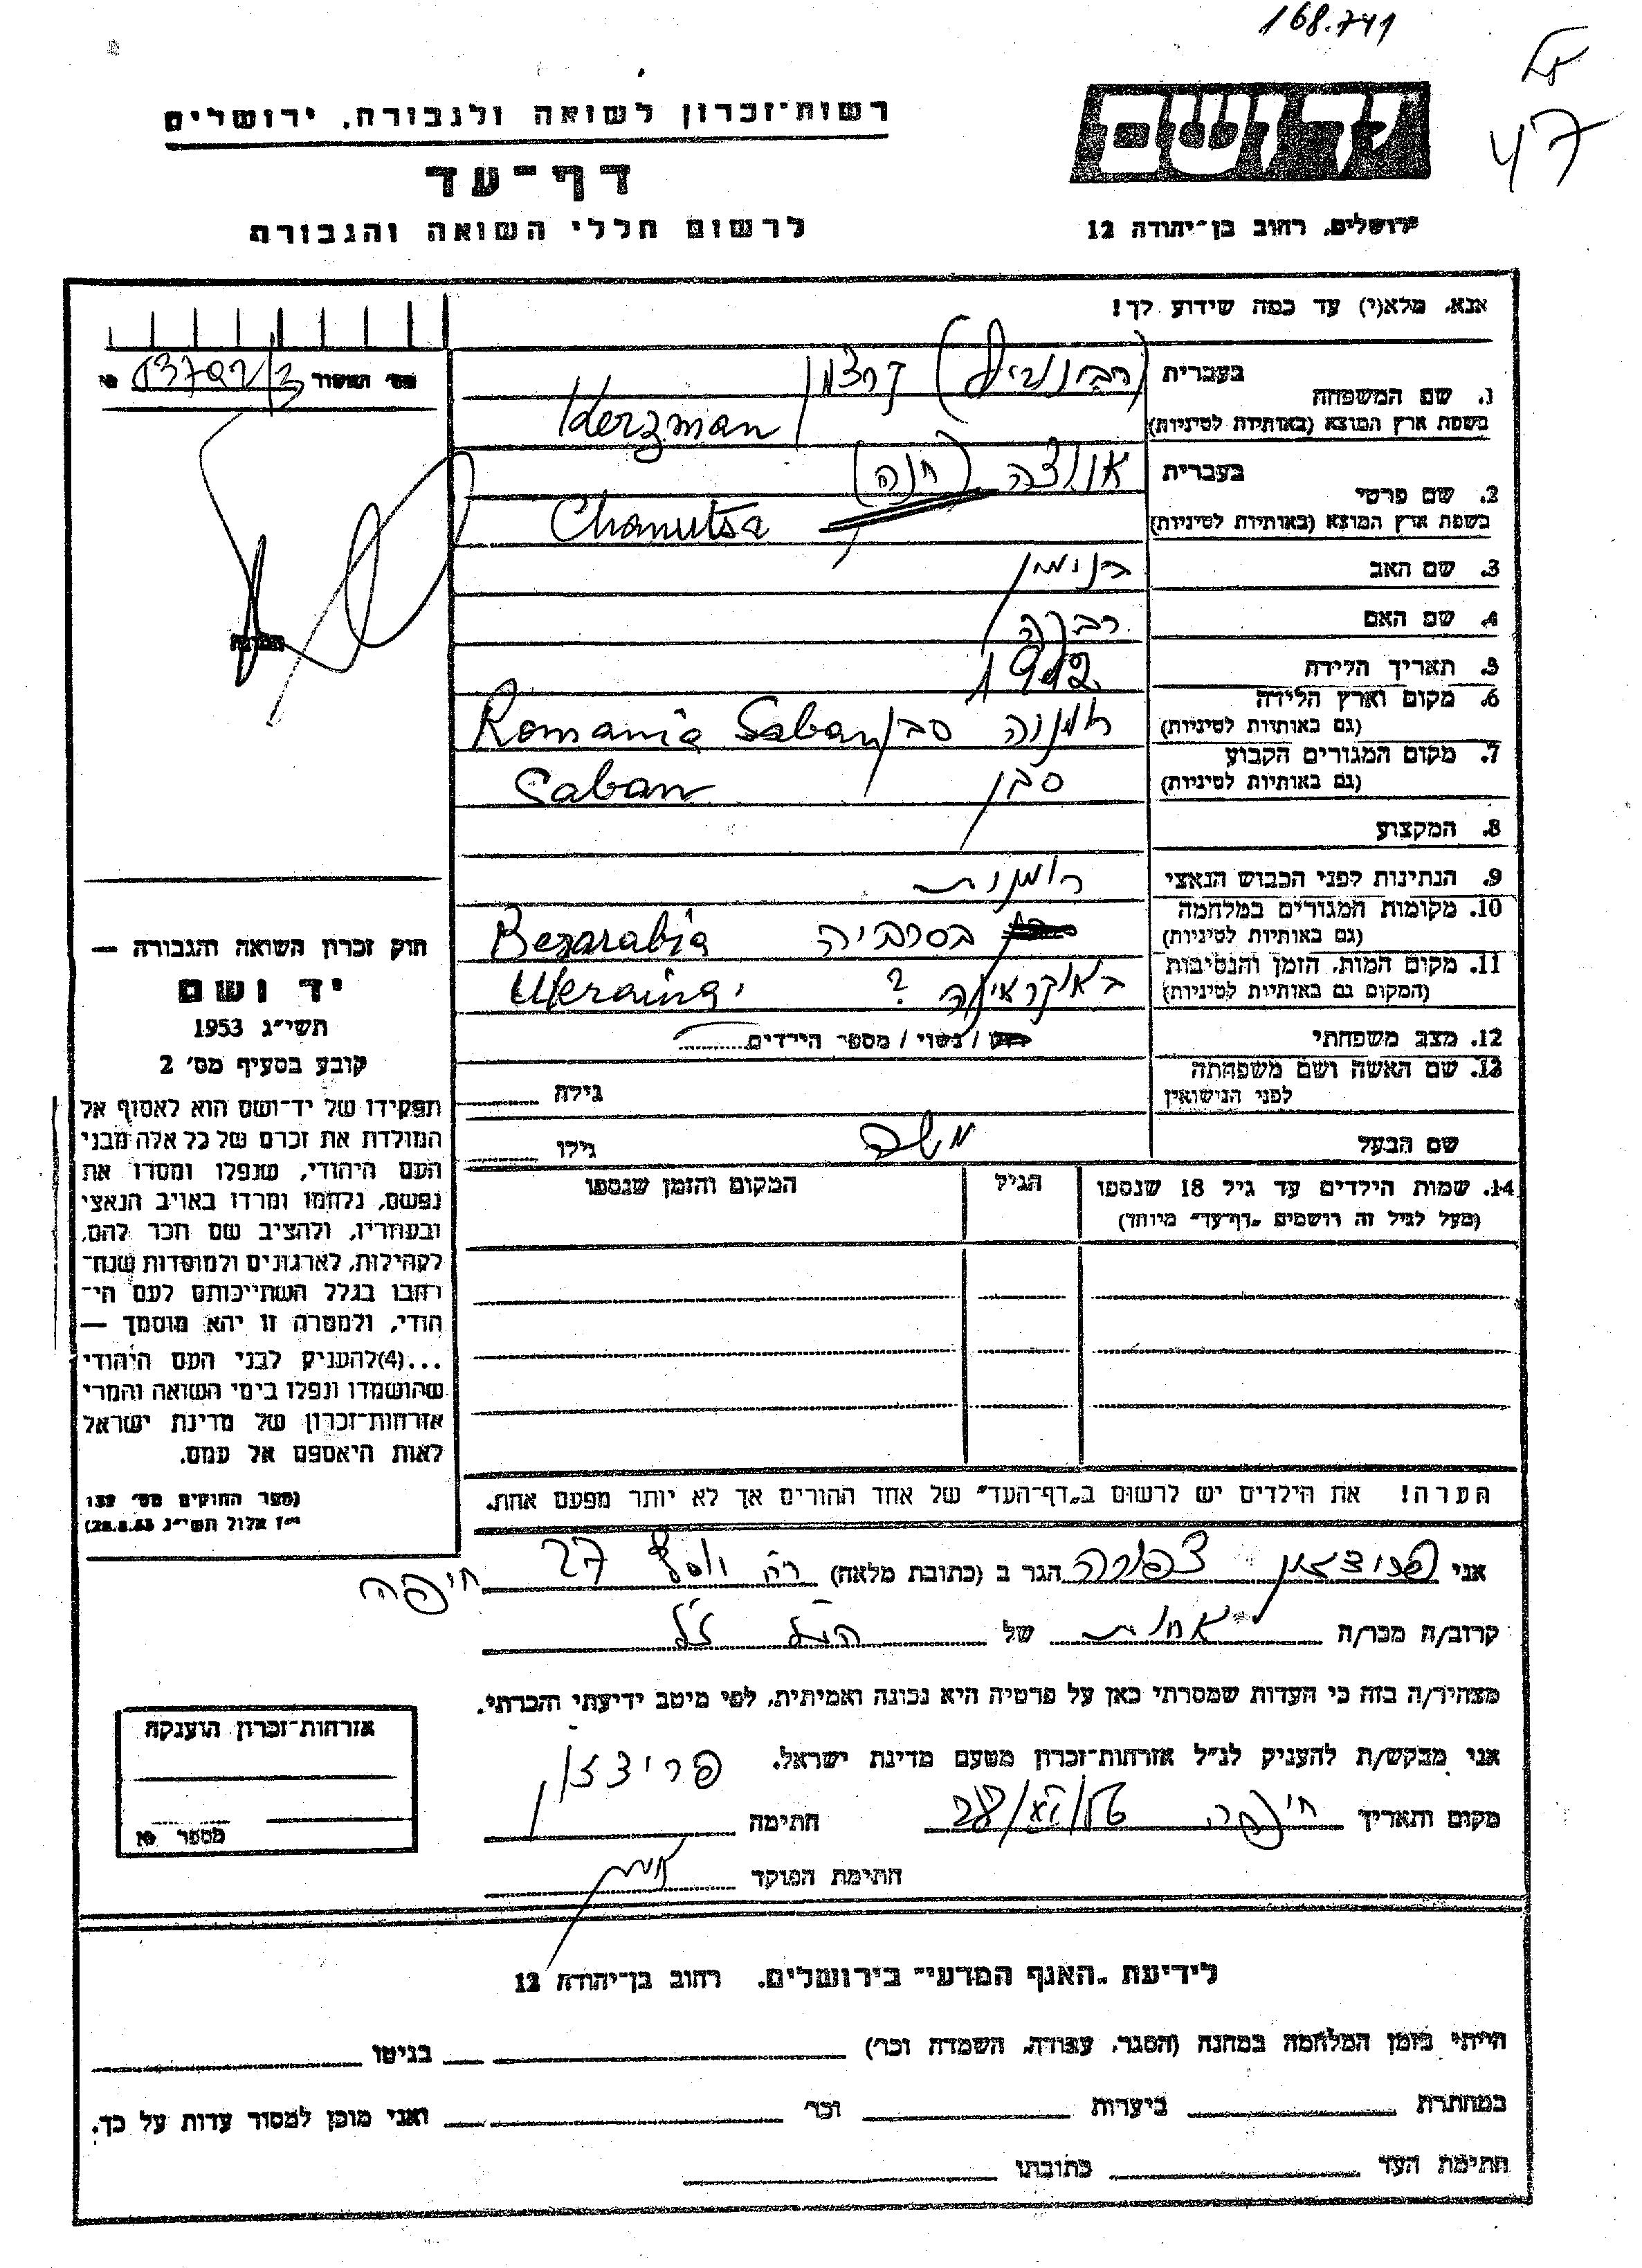 168.741
47
רשות־זכרון לשואה ולגבורה, ירושלים
דף־עד
לרשום חללי השואה והגבורה
ירושלים, רחוב בן־יהודה 12
אנא, מלא(י) עד כמה שידוע לך!
1. שם המשפחה
בעברית
קרצמן
בשפת ארץ המוצא (באותיות לטיניות)
Kerzman
2. שם פרטי
בעברית
(חנה)
בשפת ארץ המוצא (באותיות לטיניות)
Chanutsa
3. שם האב
4. שם האם
רבקה
5. תאריך הלידה
6. מקום וארץ הלידה
(גם באותיות לטיניות)
סבן Romania Saban
7. מקום המגורים הקבוע
(גם באותיות לטיניות)
סבן Saban
8. המקצוע
9. הנתינות לפני הכבוש הנאצי
רומנית
10. מקומות המגורים במלחמה
(גם באותיות לטיניות)
בסרביה Bezarabia
11. מקום המות, הזמן והנסיבות
(המקום גם באותיות לטיניות)
באוקראינה ? Ukraina
12. מצב משפחתי
/ נשוי / מספר הילדים
13. שם האשה ושם משפחתה
לפני הנישואין
גילה
שם הבעל
משה
גילו
14. שמות הילדים עד גיל 18 שנספו
(מעל לגיל זה רושמים „דף־עד" מיוחד)
הגיל
המקום והזמן שנספו
הערה! את הילדים יש לרשום ב„דף־העד" של אחד ההורים אך לא יותר מפעם אחת.
חוק זכרון השואה והגבורה —
יד ושם
תשי"ג 1953
קובע בסעיף מס' 2
תפקידו של יד־ושם הוא לאסוף אל
המולדת את זכרם של כל אלה מבני
העם היהודי, שנפלו ומסרו את
נפשם, נלחמו ומרדו באויב הנאצי
ובעוזריו, ולהציב שם וזכר להם,
לקהילות, לארגונים ולמוסדות שנח־
רבו בגלל השתייכותם לעם הי־
הודי, ולמטרה זו יהא מוסמך —
...(4)להעניק לבני העם היהודי
שהושמדו ונפלו בימי השואה והמרי
אזרחות־זכרון של מדינת ישראל
לאות היאספם אל עמם.
(ספר החוקים מס' 132
י"ז אלול תשי"ג 28.8.53)
אני צפורה הגר ב (כתובת מלאה) 27 חיפה
קרוב/ה מכר/ה אחות של הנ"ל ז"ל
מצהיר/ה בזה כי העדות שמסרתי כאן על פרטיה היא נכונה ואמיתית, לפי מיטב ידיעתי והכרתי.
אני מבקש/ת להעניק לנ"ל אזרחות־זכרון מטעם מדינת ישראל.
מקום ותאריך חיפה
חתימה
חתימת הפוקד
אזרחות־זכרון הוענקה
מספר
לידיעת „האגף המדעי" בירושלים, רחוב בן־יהודה 12
הייתי בזמן המלחמה במחנה (הסגר, עבודה, השמדה וכו') בגיטו
במחתרת ביערות וכו' ואני מוכן למסור עדות על כך.
חתימת העד כתובתו